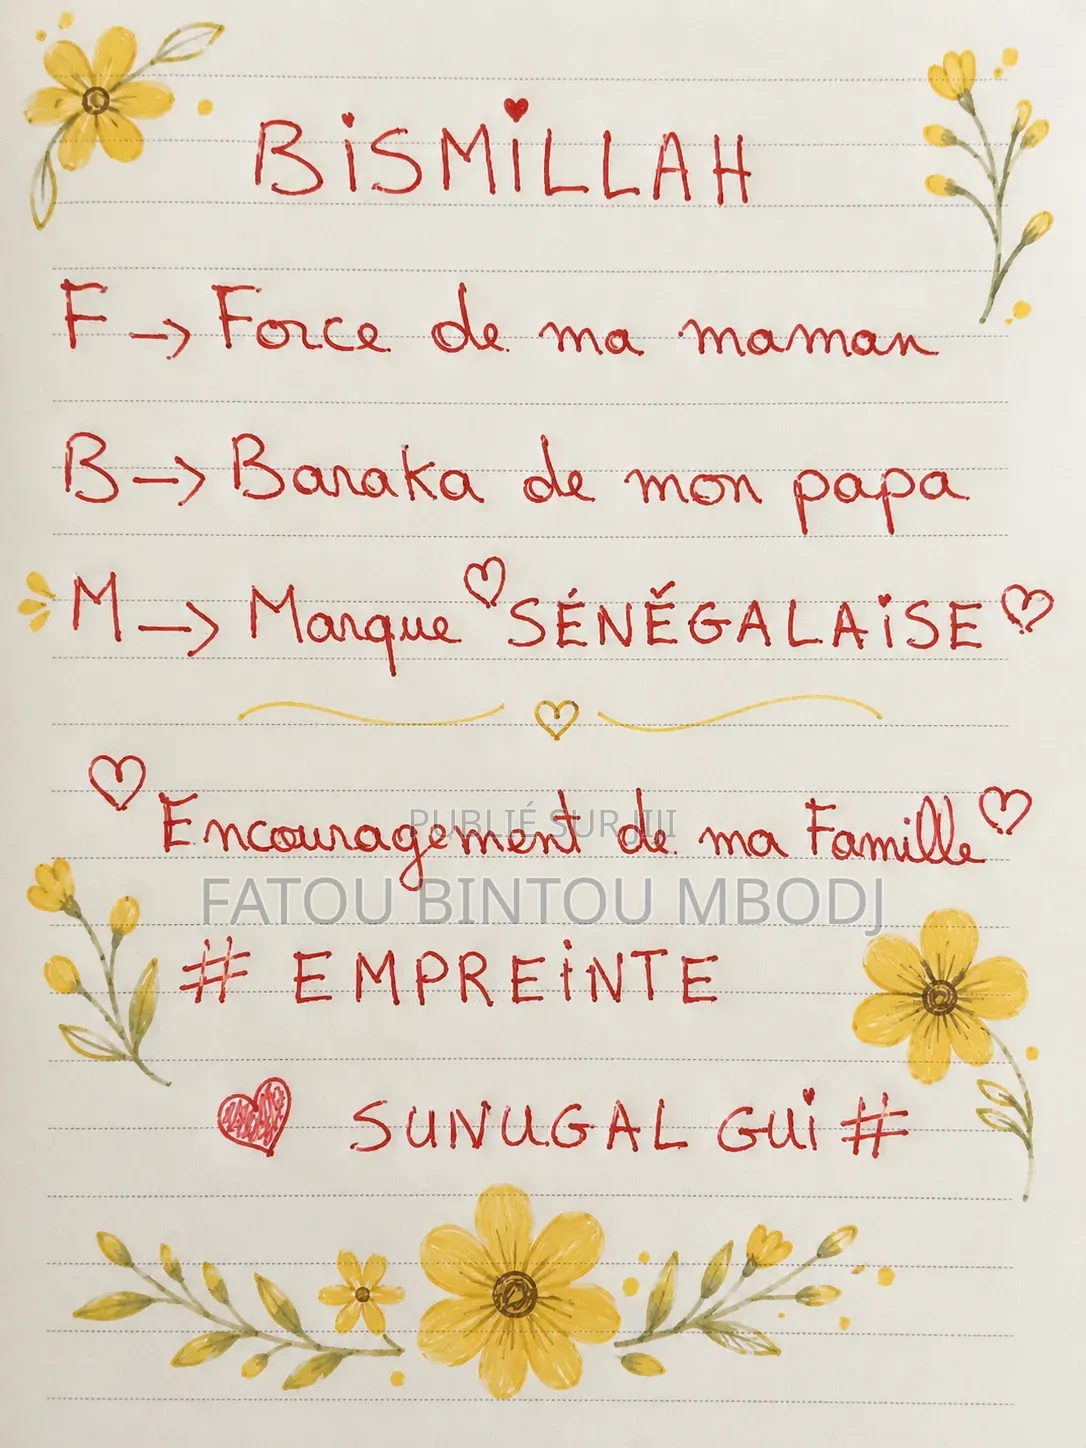 BiSMiLLAH
F → Force de ma maman
B → Baraka de mon papa
M → Marque SÉNÉGALAiSE
Encouragement de ma Famille
PUBLIÉ SUR JIJI
FATOU BINTOU MBODJ
# EMPREiNTE
SUNUGAL GUi #